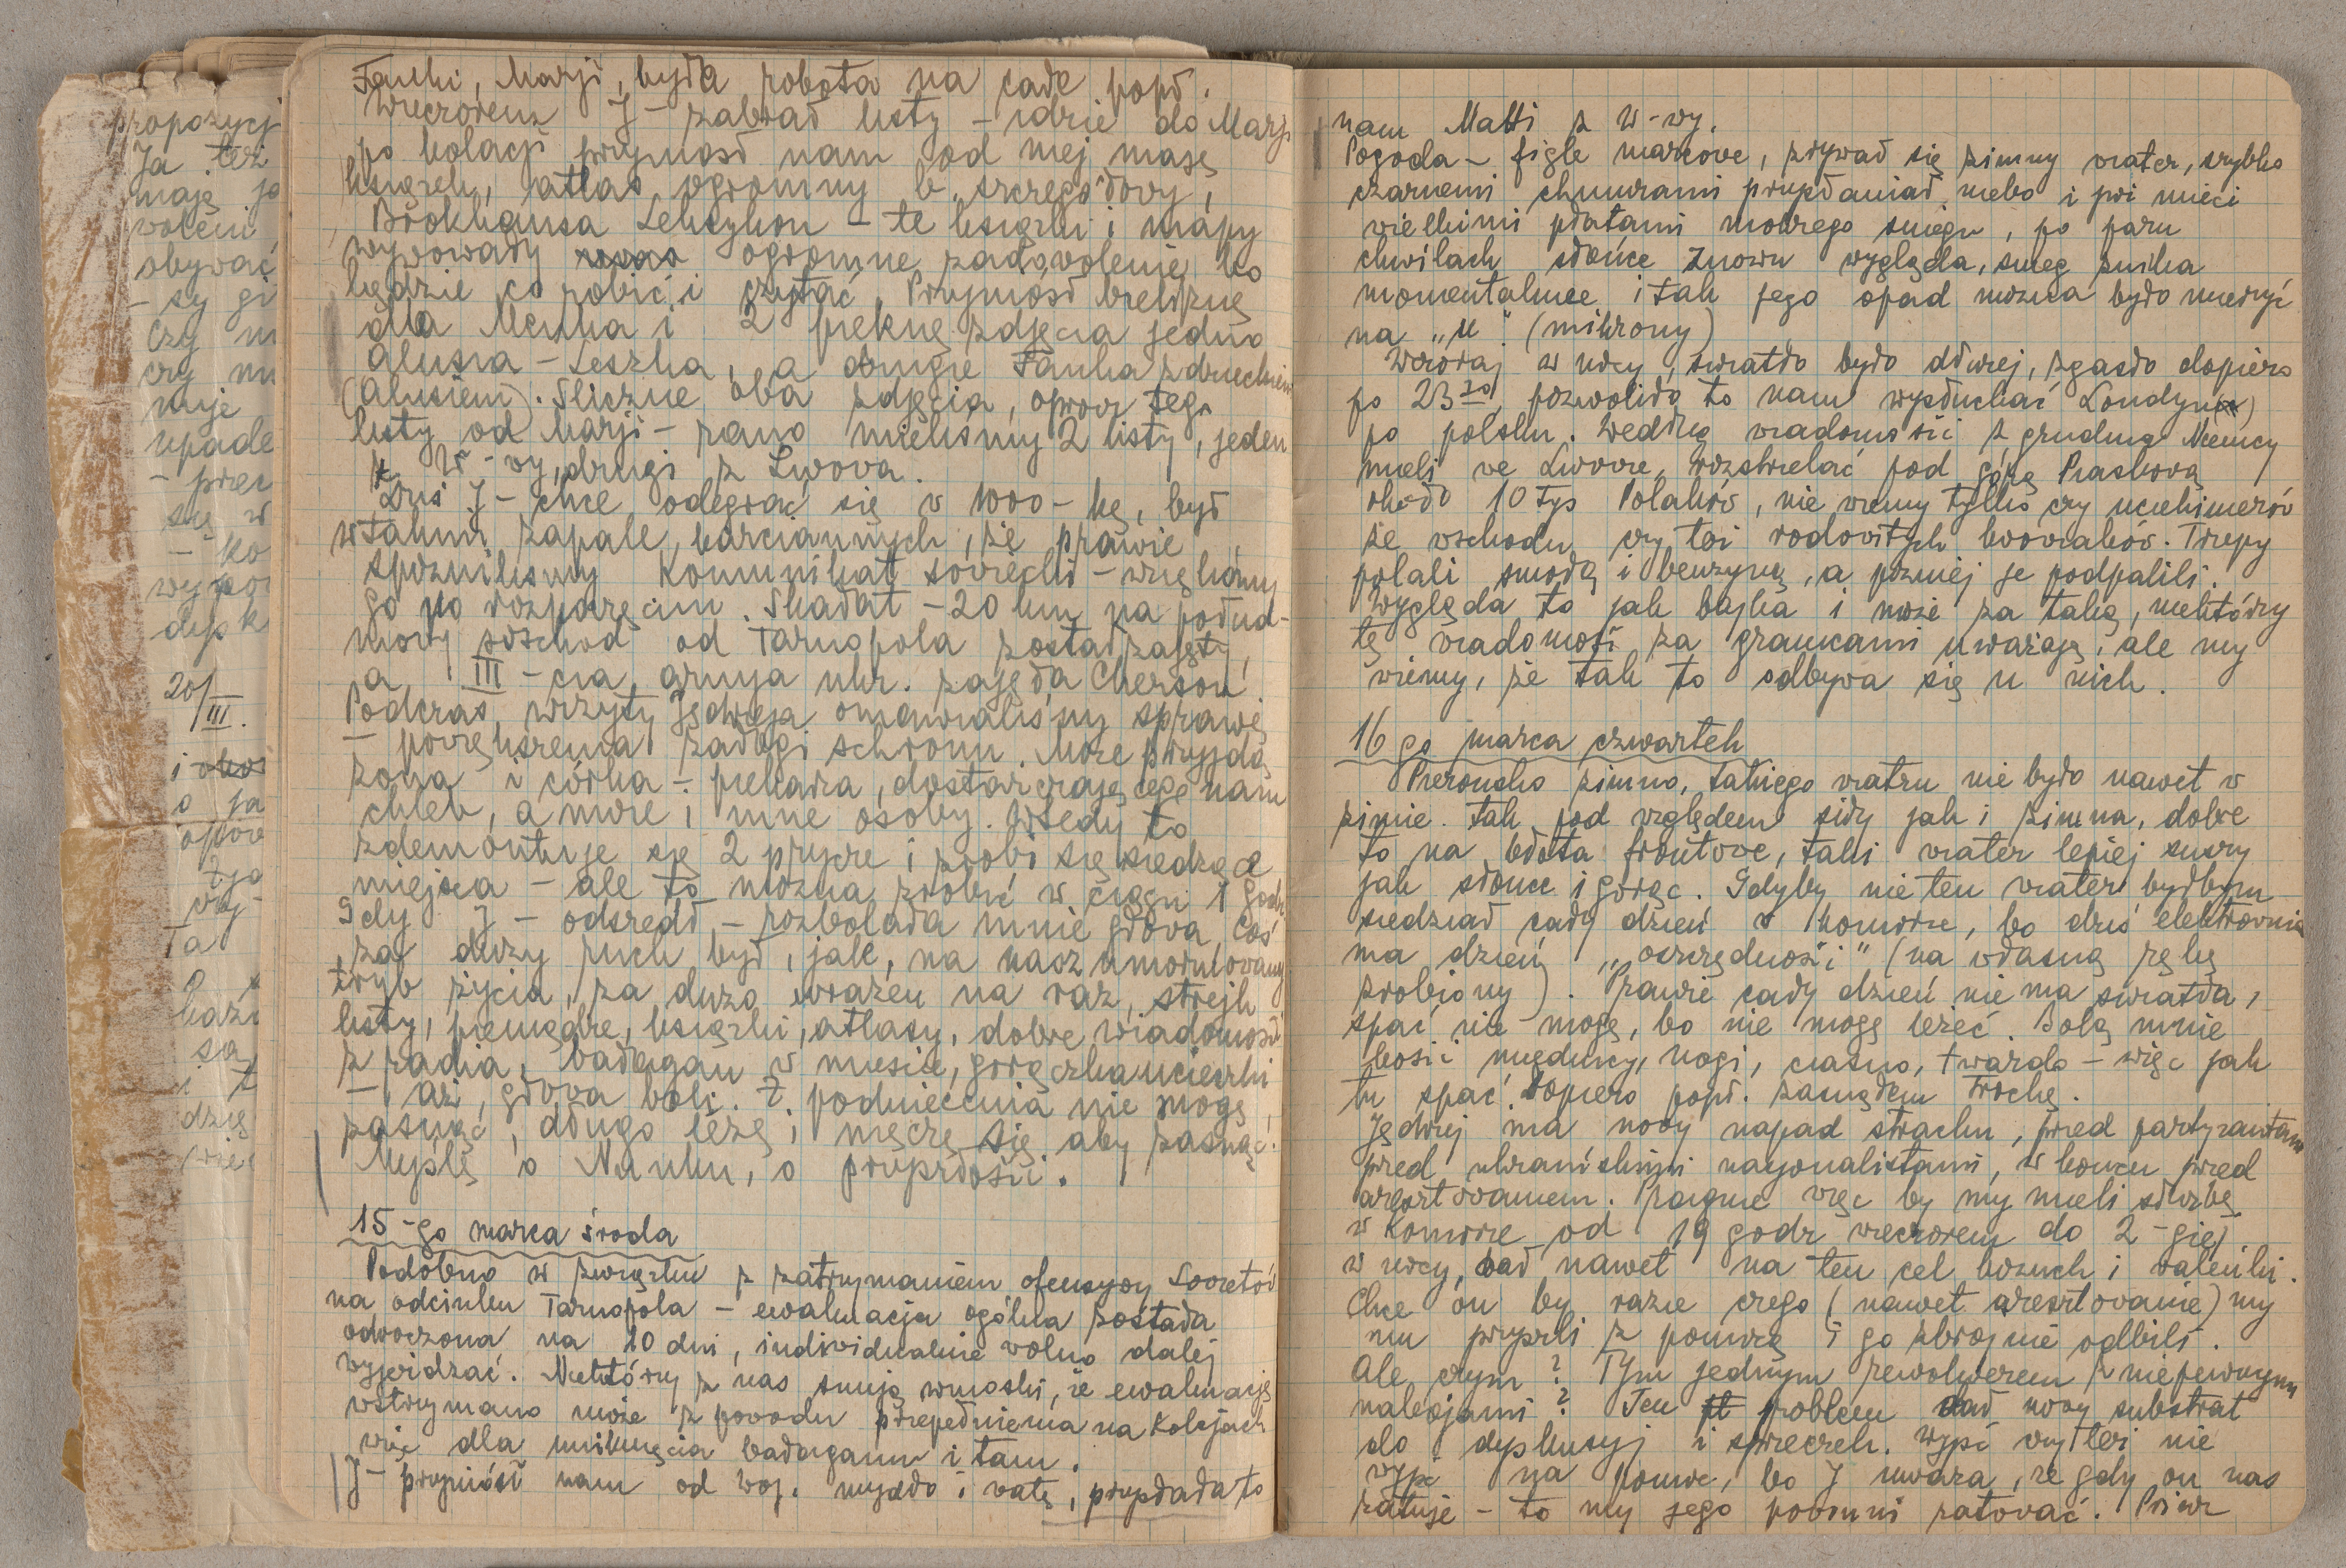 propozycj
Ja też
mają ja
woleni
obywać
- są gi
Czy m
czy mu
muje
upade
- prez
się w
- ko
wypo
dysk
20/III.
i
o ja
opow
Ta
bazi
są
i t
dzię
Fanki, Marji, była robota na całe popł.
Wieczorem J - zabrał listy - idzie do Marji
po kolacji przyniósł nam od niej masę
książek, atlas ogromny b. szczegółowy,
Brokhausa Leksykon - te książki i mapy
wywołały ogromne zadowolenie bo
będzie co robić i czytać. Przyniósł bieliznę
dla Menka i 2 piękne zdjęcia jedno
Alusia - Leszka, a drugie Fanka z dzieckiem
(Alusiem). Śliczne oba zdjęcia, oprócz tego
listy od Marji - rano mieliśmy 2 listy, jeden
z W-wy, drugi z Lwowa.
Dziś J - chce odegrać się w 1000-kę, był
w takim zapale karcianych, że prawie
spóźniliśmy Komunikat sowiecki - wzięliśmy
go po rozpoczęciu. Skałat - 20 km na połud-
niowy wschód od Tarnopola został zajęty,
a III-cia armja ukr. zajęła Cherson.
Podczas wizyty Jędrzeja omawialiśmy sprawę
- powiększenia załogi schronu. Może przyjdą
żona i córka - piekarza, dostarczającego nam
chleb, a może i inne osoby. Wtedy to
zdemontuje się 2 prycze i zrobi się siedzące
miejsca - ale to można zrobić w ciągu 1 godz
Gdy J - odszedł - rozbolała mnie głowa, coś
za duży ruch był, jak, na nasz unormowany
tryb życia, za dużo wrażeń na raz, strejk
listy, pieniądze, książki, atlasy, dobre wiadomości
z radia, bałagan w mieście, gorączka ucieczki
- aż, głowa boli. Z podniecenia nie mogę
zasnąć, długo leżę i męczę się aby zasnąć.
Myślę o Nunku, o przyszłości.
15-go marca środa
Podobno w związku z zatrzymaniem ofensywy Sowietów
na odcinku Tarnopola - ewakuacja ogólna została
odroczona na 10 dni, individualnie wolno dalej
wyjeżdżać. Niektórzy z nas snują wnioski, że ewakuację
wstrzymano może z powodu przepełnienia na Kolejach
więc dla uniknięcia bałaganu i tam.
J - przyniósł nam od woj. mydło i watę, przysłała to
nam Matti z W-wy.
Pogoda - figle marcowe, zrywał się zimny wiater, szybko
czarnemi chmurami przysłaniał niebo i prz mieci
wielkimi płatami mokrego śniegu, po paru
chwilach słońce znowu wygląda, śnieg znika
momentalnie i tak jego opad można było mierzyć
na „μ” (mikrony)
Wczoraj w nocy, światło było dłużej, zgasło dopiero
po 23³⁰, pozwoliło to nam wysłuchać Londynu
po polsku. Według wiadomości z grudnia Niemcy
mieli we Lwowie, rozstrzelać pod górą Piaskową
około 10 tys Polaków, nie wiemy tylko czy uciekinierów
ze wschodu czy też rodowitych lwowiaków. Trupy
polali smołą i benzyną, a później je podpalili.
Wygląda to jak bajka i może za taką, niektórzy
tę wiadomość za granicami uważają, ale my
wiemy, że tak to odbywa się u nich.
16 go marca czwartek
Pierońsko zimno, takiego wiatru nie było nawet w
zimie. Tak pod względem siły jak i zimna, dobre
to na błota frontowe, taki wiater lepiej suszy
jak słońce i gorąc. Gdyby nie ten wiater, byłbym
siedział cały dzień w Komorze, bo dziś elektrownia
ma dzień „oszczędności” (na własną rękę
zrobiony). Prawie cały dzień nie ma światła,
spać nie mogę, bo nie mogę leżeć. Bolą mnie
kości miednicy, nogi, ciasno, twardo - więc jak
tu spać. Dopiero popł. zasnąłem trochę.
Jędrzej ma nowy napad strachu, przed partyzantami
przed ukraińskimi nacjonalistami, w końcu przed
aresztowaniem. Pragnie więc by my mieli służbę
w Komorze od 19 godz wieczorem do 2-giej
w nocy, dał nawet na ten cel kożuch i walenki.
Chce on by razie czego (nawet aresztowanie) my
mu przyszli z pomocą i go zbrojnie odbili.
Ale czym? Tym jednym rewolwerem z niepewnym
nabojami? Ten problem dał nowy substrat
do dyskusyj i sprzeczek. Wyjść czy też nie
wyjść na pomoc, bo J uważa, że gdy on nas
ratuje - to my jego powinni ratować.